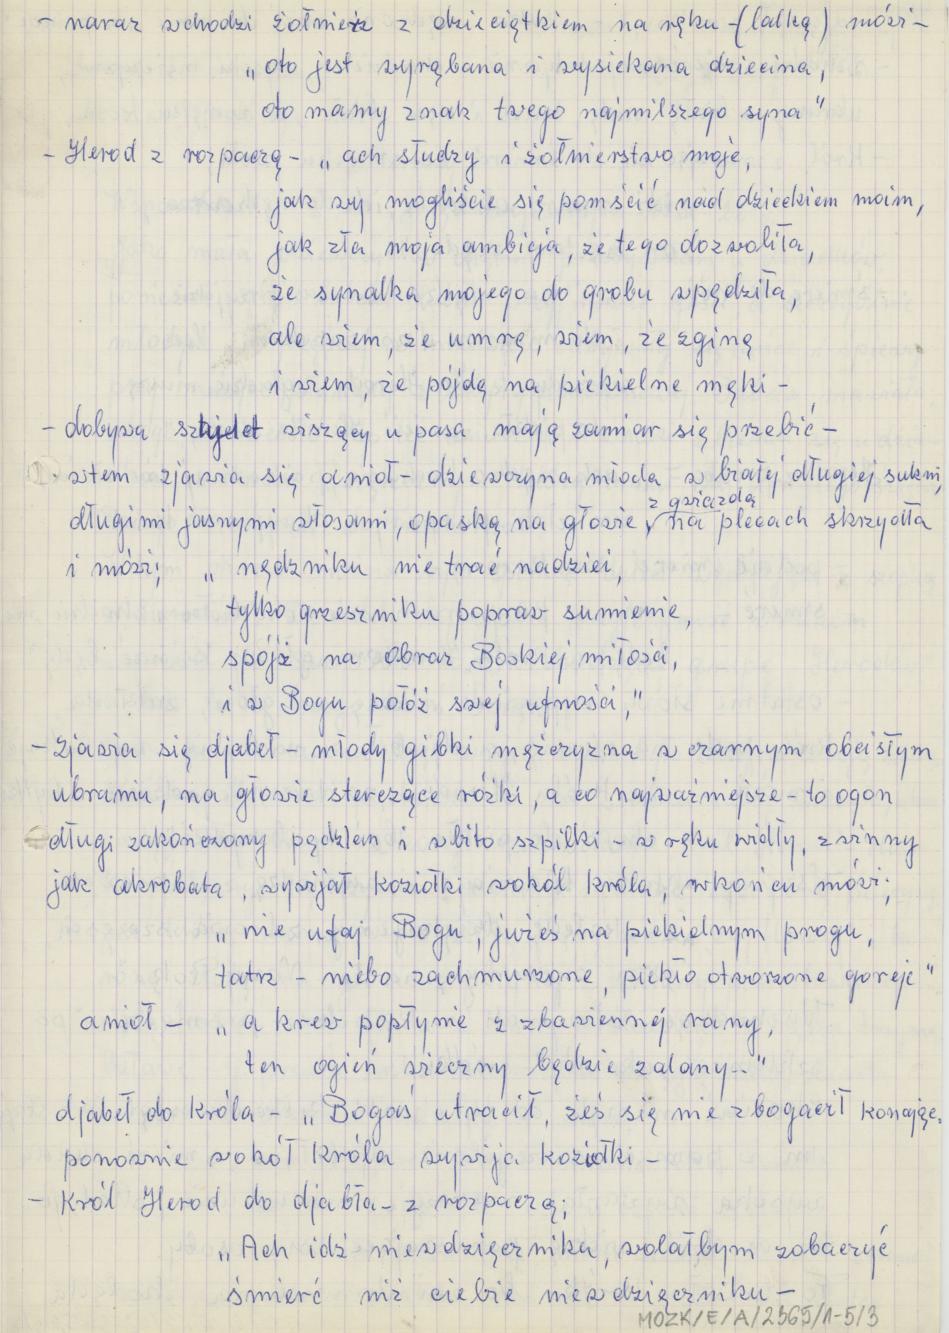 - naraz wchodzi żołnierz z dzieciątkiem na ręku -(lalką) mówi-
„oto jest wyrąbana i wysiekana dziecina,
oto mamy znak twego najmilszego syna"
- Herod z rozpaczą - „ach słudzy i żołnierstwo moje,
jak wy mogliście się pomścić nad dzieckiem moim,
jak zła moja ambicja, że tego dozwoliła,
że synalka mojego do grobu wpędziła,
ale wiem, że umrę, wiem, że zginę
i wiem, że pójdę na piekielne męki -
- dobywa sztyjlet wiszący u pasa mają zamiar się przebić -
wtem zjawia się anioł - dziewczyna młoda w białej długiej sukni,
z gwiazdą
długimi jasnymi włosami, opaską na głowie, na plecach skrzydła
i mówi; „nędzniku nie trać nadziei,
tylko grzeszniku popraw sumienie,
spójż na obraz Boskiej miłości,
i w Bogu połóż swej ufności,"
- zjawia się djabeł - młody gibki mężczyzna w czarnym obcisłym
ubraniu, na głowie sterczące różki, a co najważniejsze - to ogon
długi zakończony pędzlem i wbito szpilki - w ręku widły, zwinny
jak akrobata, wywijał koziołki wokół króla, wkońcu mówi;
„nie ufaj Bogu, jużeś na piekielnym progu,
tatrz - niebo zachmurzone, piekło otworzone goreje"
anioł - „a krew popłynie z zbawiennej rany,
ten ogień wieczny będzie zalany.."
djabeł do króla - „Bogaś utracił, żeś się nie zbogacił konając.
ponownie wokół króla wywija koziołki -
- Król Herod do djabła - z rozpaczą;
„Ach idź niewdzięczniku, wolałbym zobaczyć
śmierć niż ciebie niewdzięczniku -
MOZK/E/A/2565/1-5/3